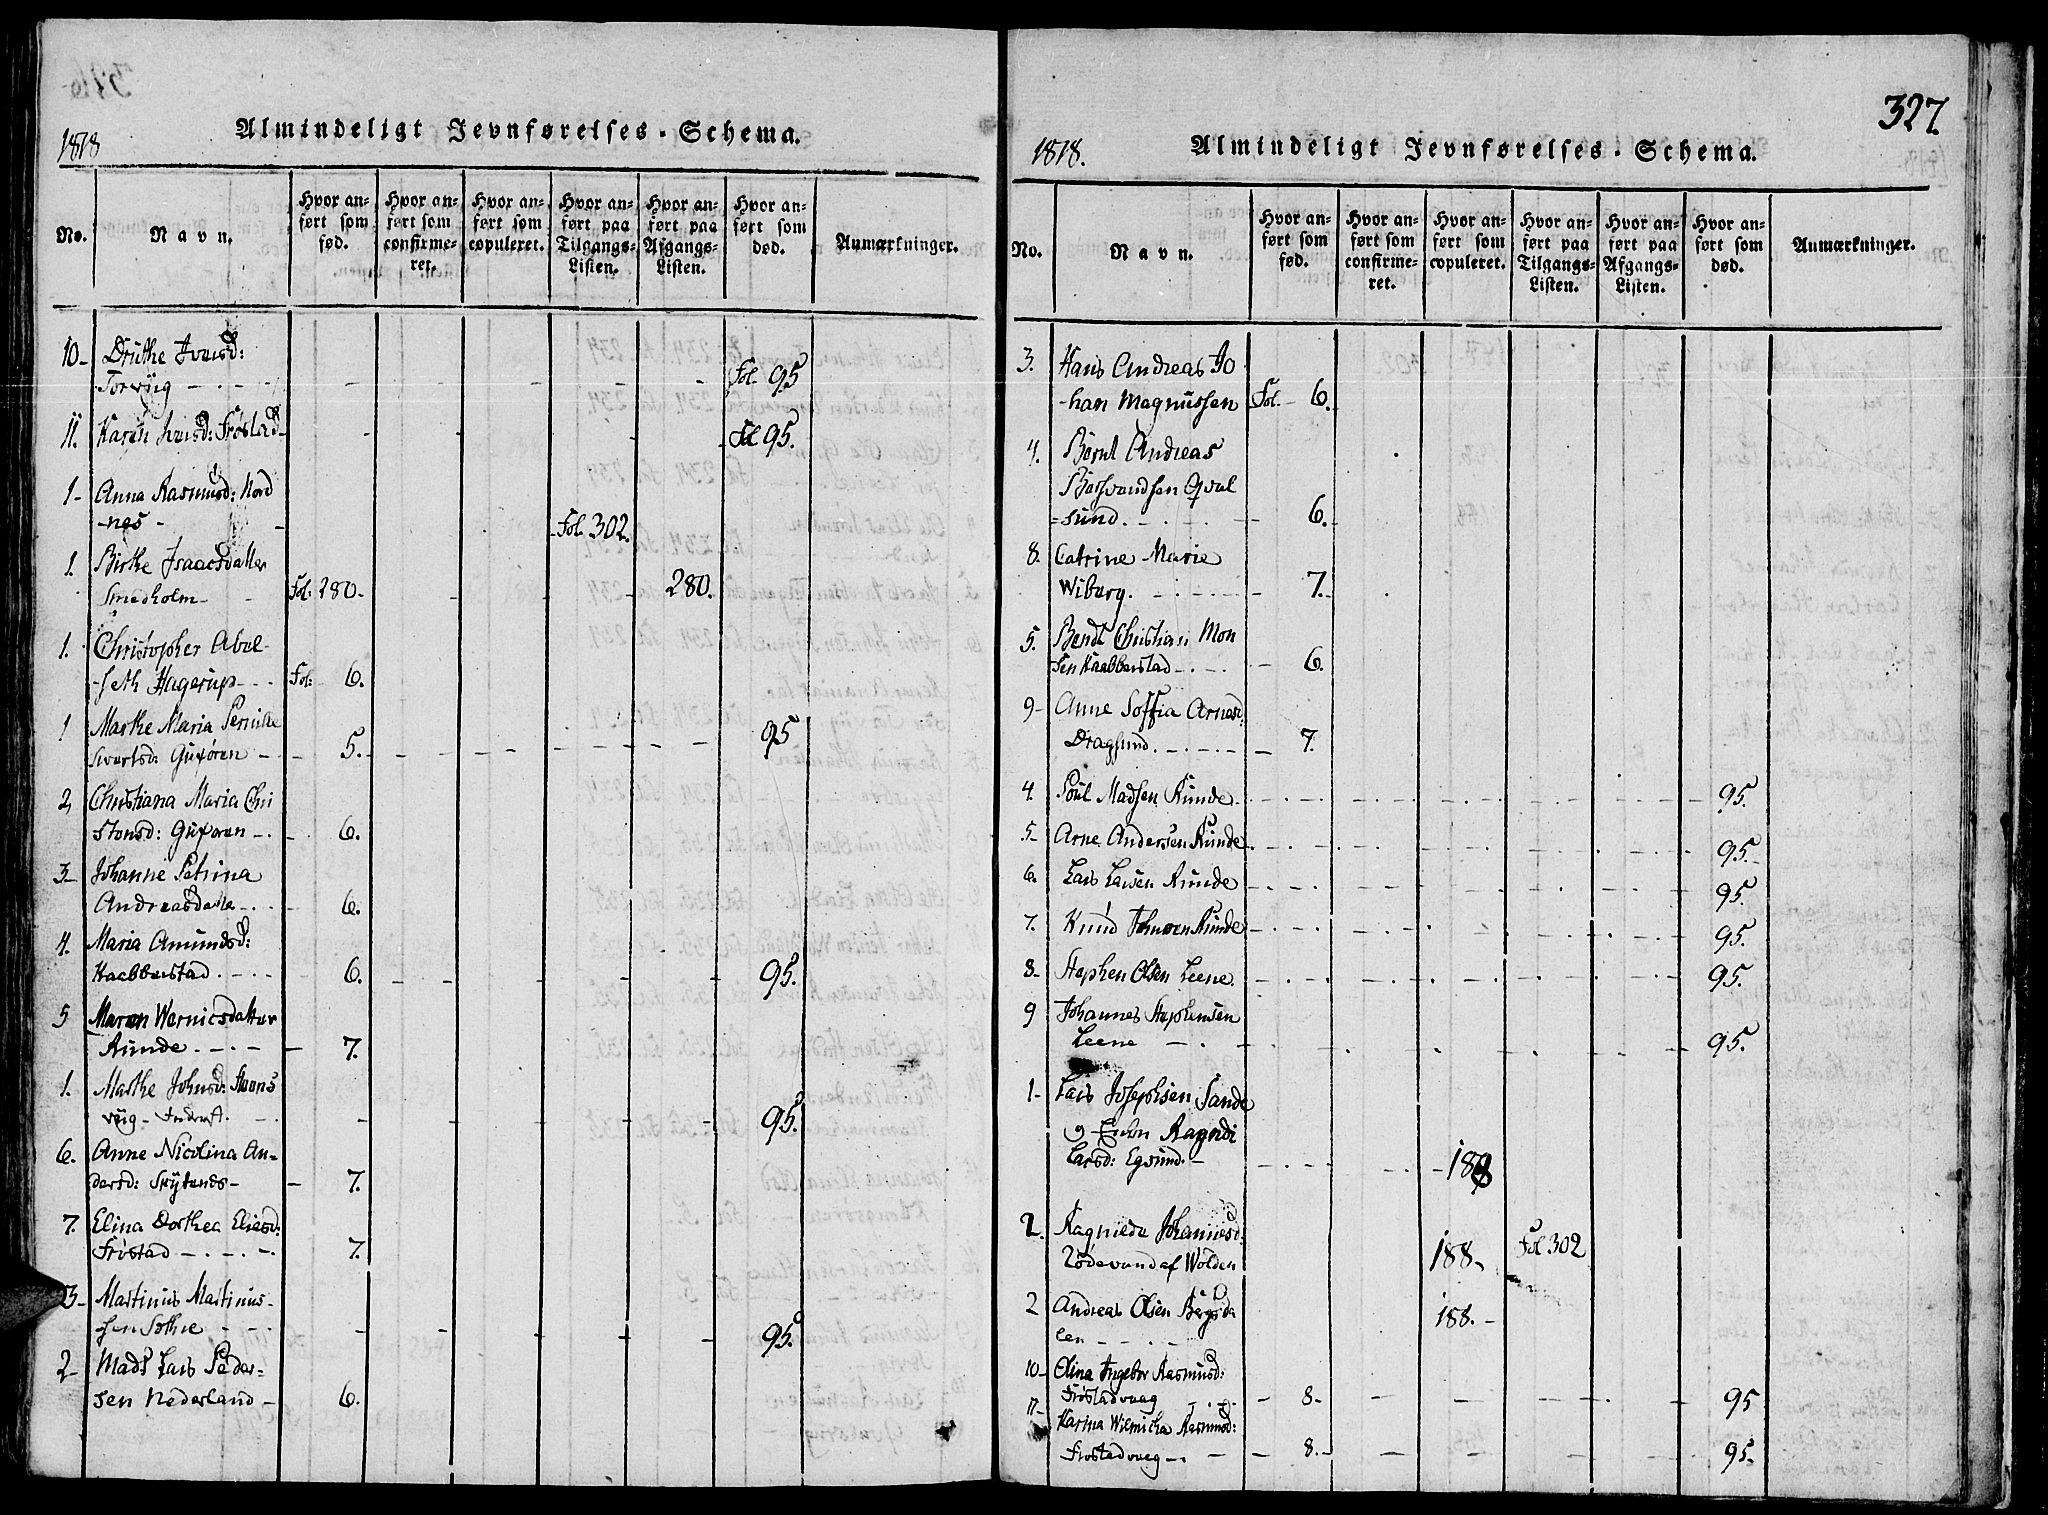 1818
Almindeligt Jevnførelses-Schema.
No.
Navn.
Hvor anført som fød.
Hvor anført som confirmeret.
Hvor anført som copuleret.
Hvor anført paa Tilgangs-Listen.
Hvor anført paa Afgangs-Listen.
Hvor anført som død.
Anmærkninger.
10- Druthe Iversd:
Torviig - - - Fol. 95
11. Karen Iversd: Frøstad- Fol 95.
1- Anna Rasmusd: Nord
-nes - Fol. 302.
1. Birthe Isaacsdatter
Smedholm- Fol. 280- 280.
1. Christopher Abel-
-seth Hagerup- Fol: 6.
1 Marthe Maria Pernille
Sivertsd: Gurøren - 5. 95
2, Christiana Maria Chri
stensd: Gurøren - 6.
3- Johanne Petrina
Andreasdatte - 6.
4. Maria Amundsd:
Haabberstad. - 6. 95.
5 Maren Wernicsdatter
Runde. - 7.
1. Marthe Johnsd: Stoens
viig - Inderst. 95.
6. Anne Nicolina An-
dersd: Skytenes- - 7.
7. Elina Dorthea Eliesd:
Frøstad - 7.
3- Martinus Martinus-
-sen Sothie - 95.
2- Mads Lars Peder-
sen Nederland - 6.
327.
1818.
Almindeligt Jevnførelses-Schema.
No.
Navn.
Hvor anført som fød.
Hvor anført som confirmeret.
Hvor anført som copuleret.
Hvor anført paa Tilgangs-Listen.
Hvor anført paa Afgangs-Listen.
Hvor anført som død.
Anmærkninger.
3. Hans Andreas Jo
-han Magnussen Fol. 6.
4. Bernt Andreas
Qval
-sund. - 6.
8. Catrine Marie
Wiburg. - 7.
5. Bendt Christian Mon
sen Haabberstad - 6.
9- Anne Soffia Arnesd:
Dragsund. - 7.
4. Poul Madsen Runde - 95.
5- Arne Andersen Runde - 95.
6. Lars Larsen Runde - 95.
7. Knud Iversen Runde - 95.
8- Stephen Olsen Leene - 95.
9 Johannes Stephensen
Leene - 95.
1- Lars Josephsen Sande
Ragndi
Larsd: Egsund. - 188
2. Ragnilde Johannesd:
Rødevand af Wolden 188- Fol 302
2 Andreas Olsen Bergsda
len - 188. -
10- Olina Ingebor Rasmusd:
Frøstadvaag - 8- 95
11- Karina Rasmusd:
Frøstadvaag - 8.- 95.